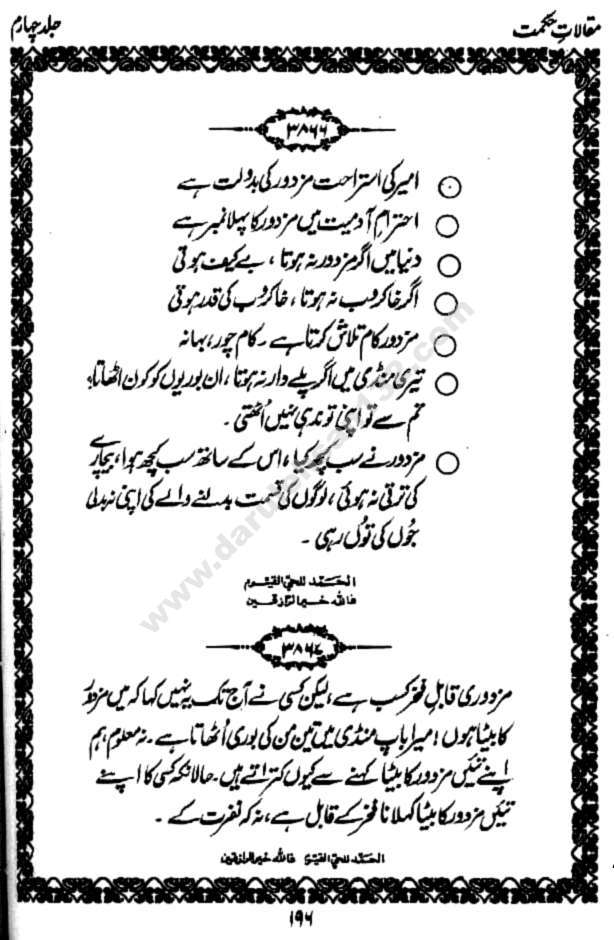 مقالاتِ حکمت
جلد چہارم
۳۸۶۶
امیر کی استراحت مزدور کی بدولت ہے
احترامِ آدمیت میں مزدور کا پہلا نمبر ہے
دنیا میں اگر مزدور نہ ہوتا ، بے کیف ہوتی
اگر خاکروب نہ ہوتا ، خاکروب کی قدر ہوتی
مزدور کام تلاش کرتا ہے ۔ کام چور ، بہانہ
تیری منڈی میں اگر پلے دار نہ ہوتا ، ان بوریوں کو کون اٹھاتا؟
تم سے تو اپنی توند ہی نہیں اُٹھتی ۔
مزدور نے سب کچھ کیا ، اس کے ساتھ سب کچھ ہوا ، بیچارے
کی ترقی نہ ہوئی ، لوگوں کی قسمت بدلنے والے کی اپنی نہ بدلی
جُوں کی تُوں رہی ۔
الحمد للحیّ القیّوم
فاللہ خیر الرازقین
۳۸۶۷
مزدوری قابلِ فخر کسب ہے ، لیکن کسی نے آج تک یہ نہیں کہا کہ میں مزدور
کا بیٹا ہوں ! میرا باپ منڈی میں تین من کی بوری اُٹھاتا ہے ۔ نہ معلوم ہم
اپنے تئیں مزدور کا بیٹا کہنے سے کیوں کتراتے ہیں ۔ حالانکہ کسی کا اپنے
تئیں مزدور کا بیٹا کہلانا فخر کے قابل ہے ، نہ کہ نفرت کے ۔
الحمد للحیّ القیّوم فاللہ خیر الرازقین
۱۹۶